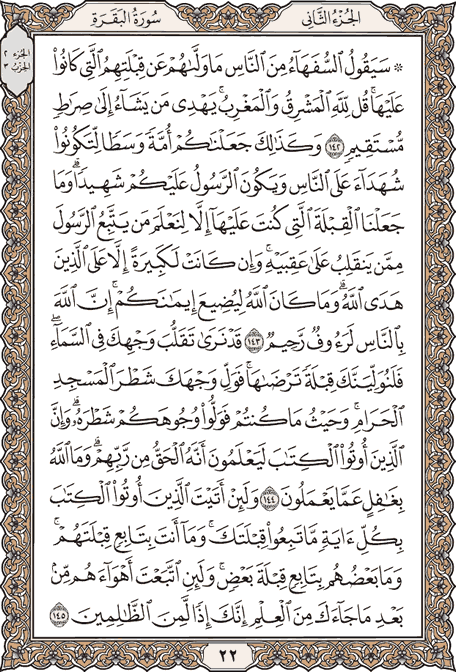 الجُزْءُ الثَّانِى
سُورَةُ البَقَرَةِ
الجزء ٢
الحزب ٣
۞ سَيَقُولُ ٱلسُّفَهَآءُ مِنَ ٱلنَّاسِ مَا وَلَّىٰهُمْ عَن قِبْلَتِهِمُ ٱلَّتِى كَانُوا۟
عَلَيْهَا ۚ قُل لِّلَّهِ ٱلْمَشْرِقُ وَٱلْمَغْرِبُ ۚ يَهْدِى مَن يَشَآءُ إِلَىٰ صِرَٰطٍ
مُّسْتَقِيمٍ ١٤٢ وَكَذَٰلِكَ جَعَلْنَٰكُمْ أُمَّةً وَسَطًا لِّتَكُونُوا۟
شُهَدَآءَ عَلَى ٱلنَّاسِ وَيَكُونَ ٱلرَّسُولُ عَلَيْكُمْ شَهِيدًا ۗ وَمَا
جَعَلْنَا ٱلْقِبْلَةَ ٱلَّتِى كُنتَ عَلَيْهَآ إِلَّا لِنَعْلَمَ مَن يَتَّبِعُ ٱلرَّسُولَ
مِمَّن يَنقَلِبُ عَلَىٰ عَقِبَيْهِ ۚ وَإِن كَانَتْ لَكَبِيرَةً إِلَّا عَلَى ٱلَّذِينَ
هَدَى ٱللَّهُ ۗ وَمَا كَانَ ٱللَّهُ لِيُضِيعَ إِيمَٰنَكُمْ ۚ إِنَّ ٱللَّهَ
بِٱلنَّاسِ لَرَءُوفٌ رَّحِيمٌ ١٤٣ قَدْ نَرَىٰ تَقَلُّبَ وَجْهِكَ فِى ٱلسَّمَآءِ ۖ
فَلَنُوَلِّيَنَّكَ قِبْلَةً تَرْضَىٰهَا ۚ فَوَلِّ وَجْهَكَ شَطْرَ ٱلْمَسْجِدِ
ٱلْحَرَامِ ۚ وَحَيْثُ مَا كُنتُمْ فَوَلُّوا۟ وُجُوهَكُمْ شَطْرَهُۥ ۗ وَإِنَّ
ٱلَّذِينَ أُوتُوا۟ ٱلْكِتَٰبَ لَيَعْلَمُونَ أَنَّهُ ٱلْحَقُّ مِن رَّبِّهِمْ ۗ وَمَا ٱللَّهُ
بِغَٰفِلٍ عَمَّا يَعْمَلُونَ ١٤٤ وَلَئِنْ أَتَيْتَ ٱلَّذِينَ أُوتُوا۟ ٱلْكِتَٰبَ
بِكُلِّ ءَايَةٍ مَّا تَبِعُوا۟ قِبْلَتَكَ ۚ وَمَآ أَنتَ بِتَابِعٍ قِبْلَتَهُمْ ۚ
وَمَا بَعْضُهُم بِتَابِعٍ قِبْلَةَ بَعْضٍ ۚ وَلَئِنِ ٱتَّبَعْتَ أَهْوَآءَهُم مِّنۢ
بَعْدِ مَا جَآءَكَ مِنَ ٱلْعِلْمِ ۙ إِنَّكَ إِذًا لَّمِنَ ٱلظَّٰلِمِينَ ١٤٥
٢٢